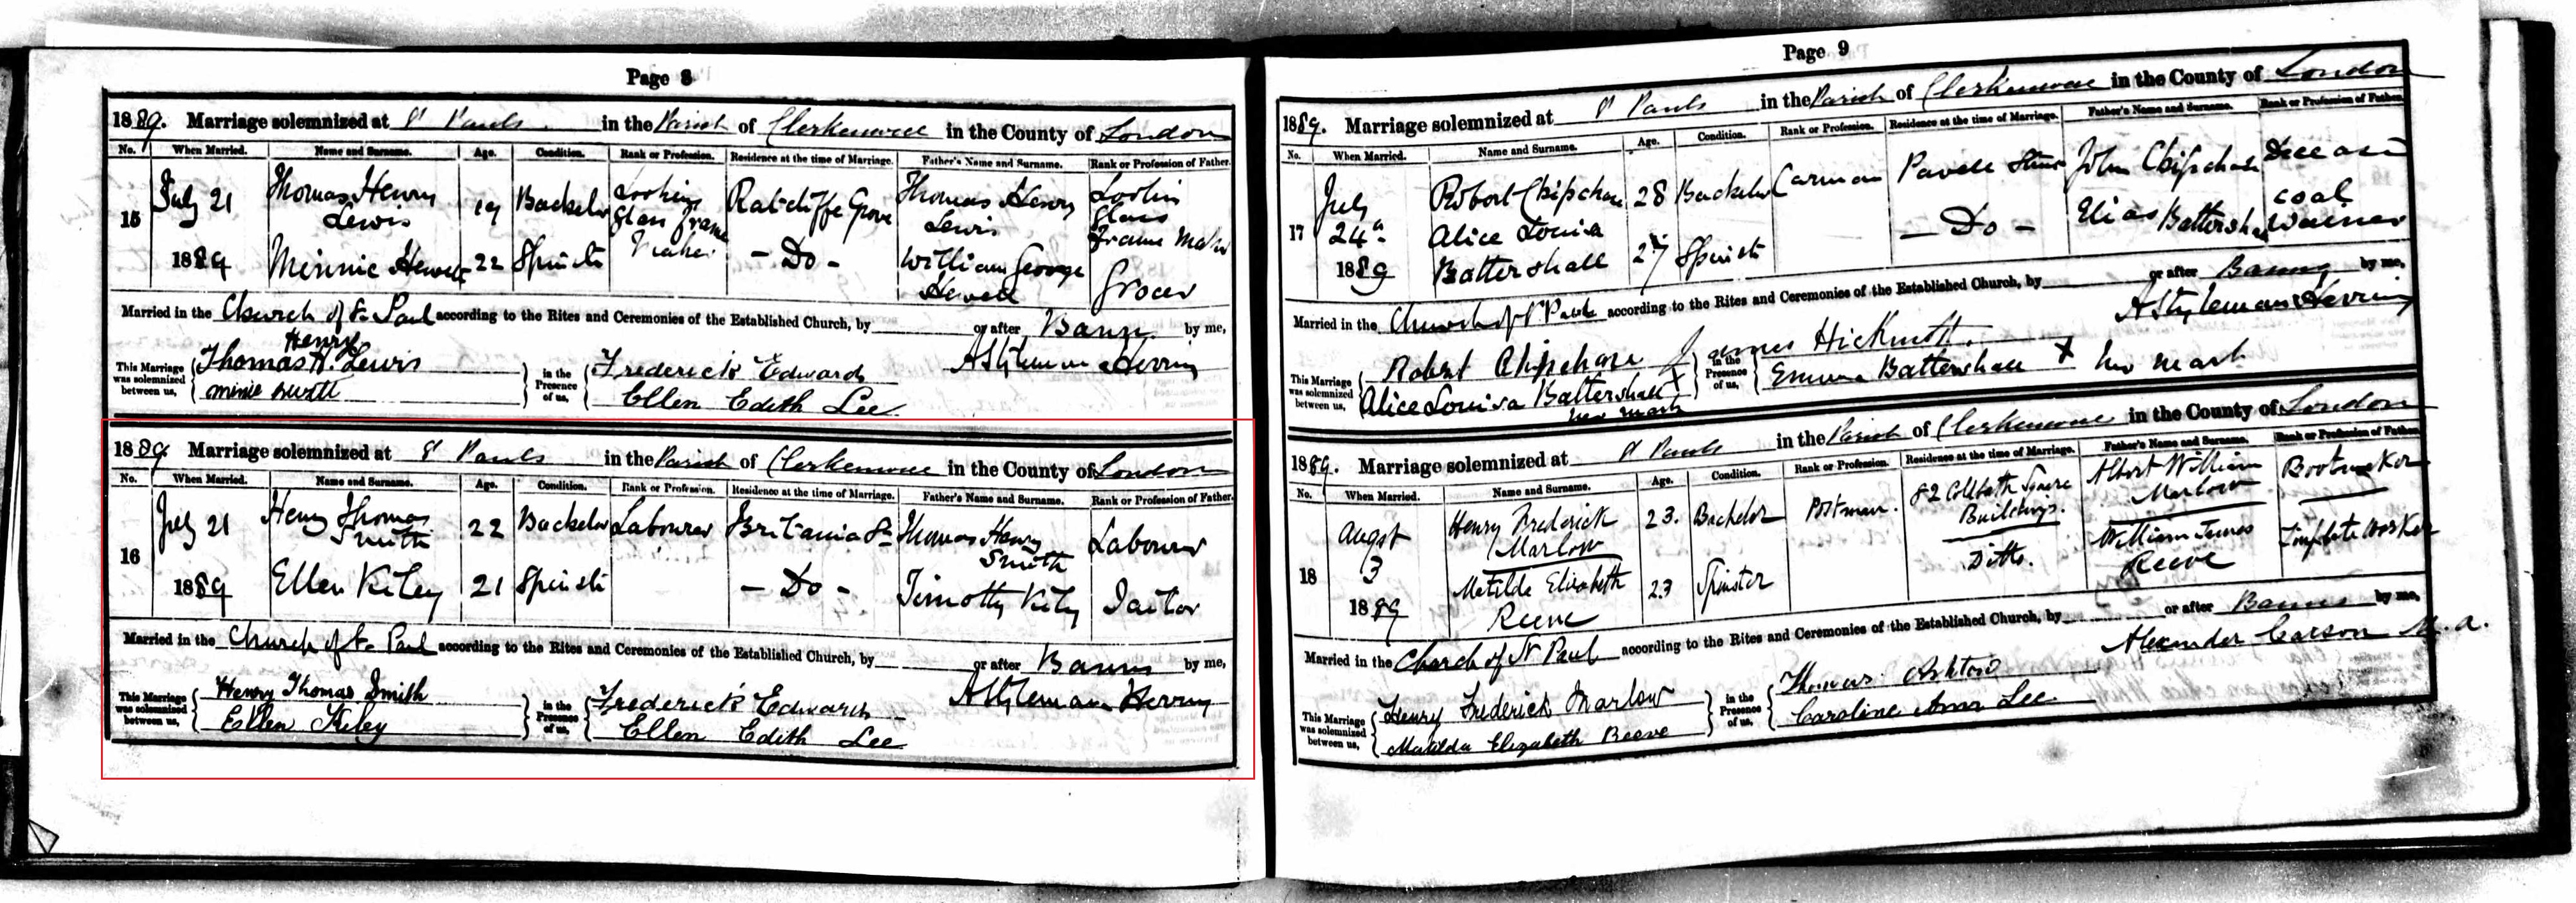 Page 8
1889. Marriage solemnized at St Pauls in the Parish of Clerkenwell in the County of London
No. When Married. Name and Surname. Age. Condition. Rank or Profession. Residence at the time of Marriage. Father's Name and Surname. Rank or Profession of Father.
15 July 21 1889
Thomas Henry Lewis 19 Bachelor Looking Glass Frame Maker Ratcliffe Grove Thomas Henry Lewis Lookin Glass Frame Maker
Minnie Hewett 22 Spinster - Do - William George Hewett Grocer
Married in the Church of St. Paul according to the Rites and Ceremonies of the Established Church, by or after Banns by me,
Henry
Thomas H. Lewis
minie
A Styleman Herring
This Marriage was solemnized between us, in the Presence of us,
Frederick Edwards
Ellen Edith Lee
1889. Marriage solemnized at St Pauls in the Parish of Clerkenwell in the County of London
No. When Married. Name and Surname. Age. Condition. Rank or Profession. Residence at the time of Marriage. Father's Name and Surname. Rank or Profession of Father.
16 July 21 1889
Henry Thomas Smith 22 Bachelor Labourer Britania St Thomas Henry Smith Labourer
Ellen Kiley 21 Spinster - Do - Timothy Kiley Tailor
Married in the Church of St. Paul according to the Rites and Ceremonies of the Established Church, by or after Banns by me,
This Marriage was solemnized between us, Henry Thomas Smith in the Presence of us, Frederick Edwards A Styleman Herring
Ellen Kiley Ellen Edith Lee
Page 9
1889. Marriage solemnized at St Pauls in the Parish of Clerkenwell in the County of London
No. When Married. Name and Surname. Age. Condition. Rank or Profession. Residence at the time of Marriage. Father's Name and Surname. Rank or Profession of Father.
17 July 24th 1889
Robert Chipchase 28 Bachelor Carman Pavell Street John Chipchase Deceased
Alice Louisa Battershall 27 Spinster - Do - Elias Battershall coal
Married in the Church of St Pauls according to the Rites and Ceremonies of the Established Church, by or after Banns by me,
This Marriage was solemnized between us, Robert Chipchase in the Presence of us, James A Styleman Herring
Alice Louisa Battershall X her mark Emma Battershall X her mark
1889. Marriage solemnized at St Pauls in the Parish of Clerkenwell in the County of London
No. When Married. Name and Surname. Age. Condition. Rank or Profession. Residence at the time of Marriage. Father's Name and Surname. Rank or Profession of Father.
18 August 3 1889
Henry Frederick Marlow 23. Bachelor Postman. 82 Square Buildings. Albert William Marlow Bootmaker
Matilda Elizabeth Reeve 23 Spinster Ditto. William James Reeve Tinplate Worker
Married in the Church of St Paul according to the Rites and Ceremonies of the Established Church, by or after Banns by me,
This Marriage was solemnized between us, Henry Frederick Marlow in the Presence of us, Thomas Ashton Alexander Carson M.A.
Matilda Elizabeth Reeve Caroline Ann Lee